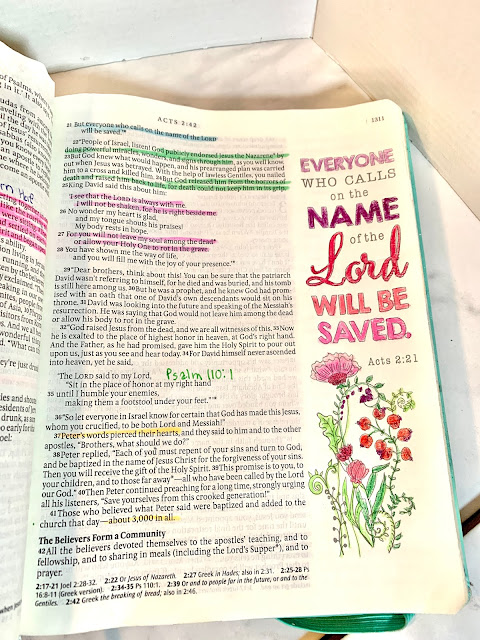 of Psalms, who
ACTS 2:42
1311
21 But everyone who calls on the name of the LORD
will be saved.’*
22 “People of Israel, listen! God publicly endorsed Jesus the Nazarene* by
doing powerful miracles, wonders, and signs through him, as you well know.
23 But God knew what would happen, and his prearranged plan was carried
out when Jesus was betrayed. With the help of lawless Gentiles, you nailed
him to a cross and killed him. 24 But God released him from the horrors of
death and raised him back to life, for death could not keep him in its grip.
25 King David said this about him:
‘I see that the LORD is always with me.
I will not be shaken, for he is right beside me.
26 No wonder my heart is glad,
and my tongue shouts his praises!
My body rests in hope.
27 For you will not leave my soul among the dead*
or allow your Holy One to rot in the grave.
28 You have shown me the way of life,
and you will fill me with the joy of your presence.’*
29 “Dear brothers, think about this! You can be sure that the patriarch
David wasn’t referring to himself, for he died and was buried, and his tomb
is still here among us. 30 But he was a prophet, and he knew God had prom-
ised with an oath that one of David’s own descendants would sit on his
throne. 31 David was looking into the future and speaking of the Messiah’s
resurrection. He was saying that God would not leave him among the dead
or allow his body to rot in the grave.
32 “God raised Jesus from the dead, and we are all witnesses of this. 33 Now
he is exalted to the place of highest honor in heaven, at God’s right hand.
And the Father, as he had promised, gave him the Holy Spirit to pour out
upon us, just as you see and hear today. 34 For David himself never ascended
into heaven, yet he said,
‘The LORD said to my Lord,
Psalm 110:1
“Sit in the place of honor at my right hand
35 until I humble your enemies,
making them a footstool under your feet.”’*
36 “So let everyone in Israel know for certain that God has made this Jesus,
whom you crucified, to be both Lord and Messiah!”
37 Peter’s words pierced their hearts, and they said to him and to the other
apostles, “Brothers, what should we do?”
38 Peter replied, “Each of you must repent of your sins and turn to God,
and be baptized in the name of Jesus Christ for the forgiveness of your sins.
Then you will receive the gift of the Holy Spirit. 39 This promise is to you, to
your children, and to those far away*—all who have been called by the Lord
our God.” 40 Then Peter continued preaching for a long time, strongly urging
all his listeners, “Save yourselves from this crooked generation!”
41 Those who believed what Peter said were baptized and added to the
church that day—about 3,000 in all.
The Believers Form a Community
42 All the believers devoted themselves to the apostles’ teaching, and to
fellowship, and to sharing in meals (including the Lord’s Supper*), and to
prayer.
2:17-21 Joel 2:28-32. 2:22 Or Jesus of Nazareth. 2:27 Greek in Hades; also in 2:31. 2:25-28 Ps
16:8-11 (Greek version). 2:34-35 Ps 110:1. 2:39 Or and to people far in the future, or and to the
Gentiles. 2:42 Greek the breaking of bread; also in 2:46.
EVERYONE
WHO CALLS
on the
NAME
of the
Lord
WILL BE
SAVED.
Acts 2:21